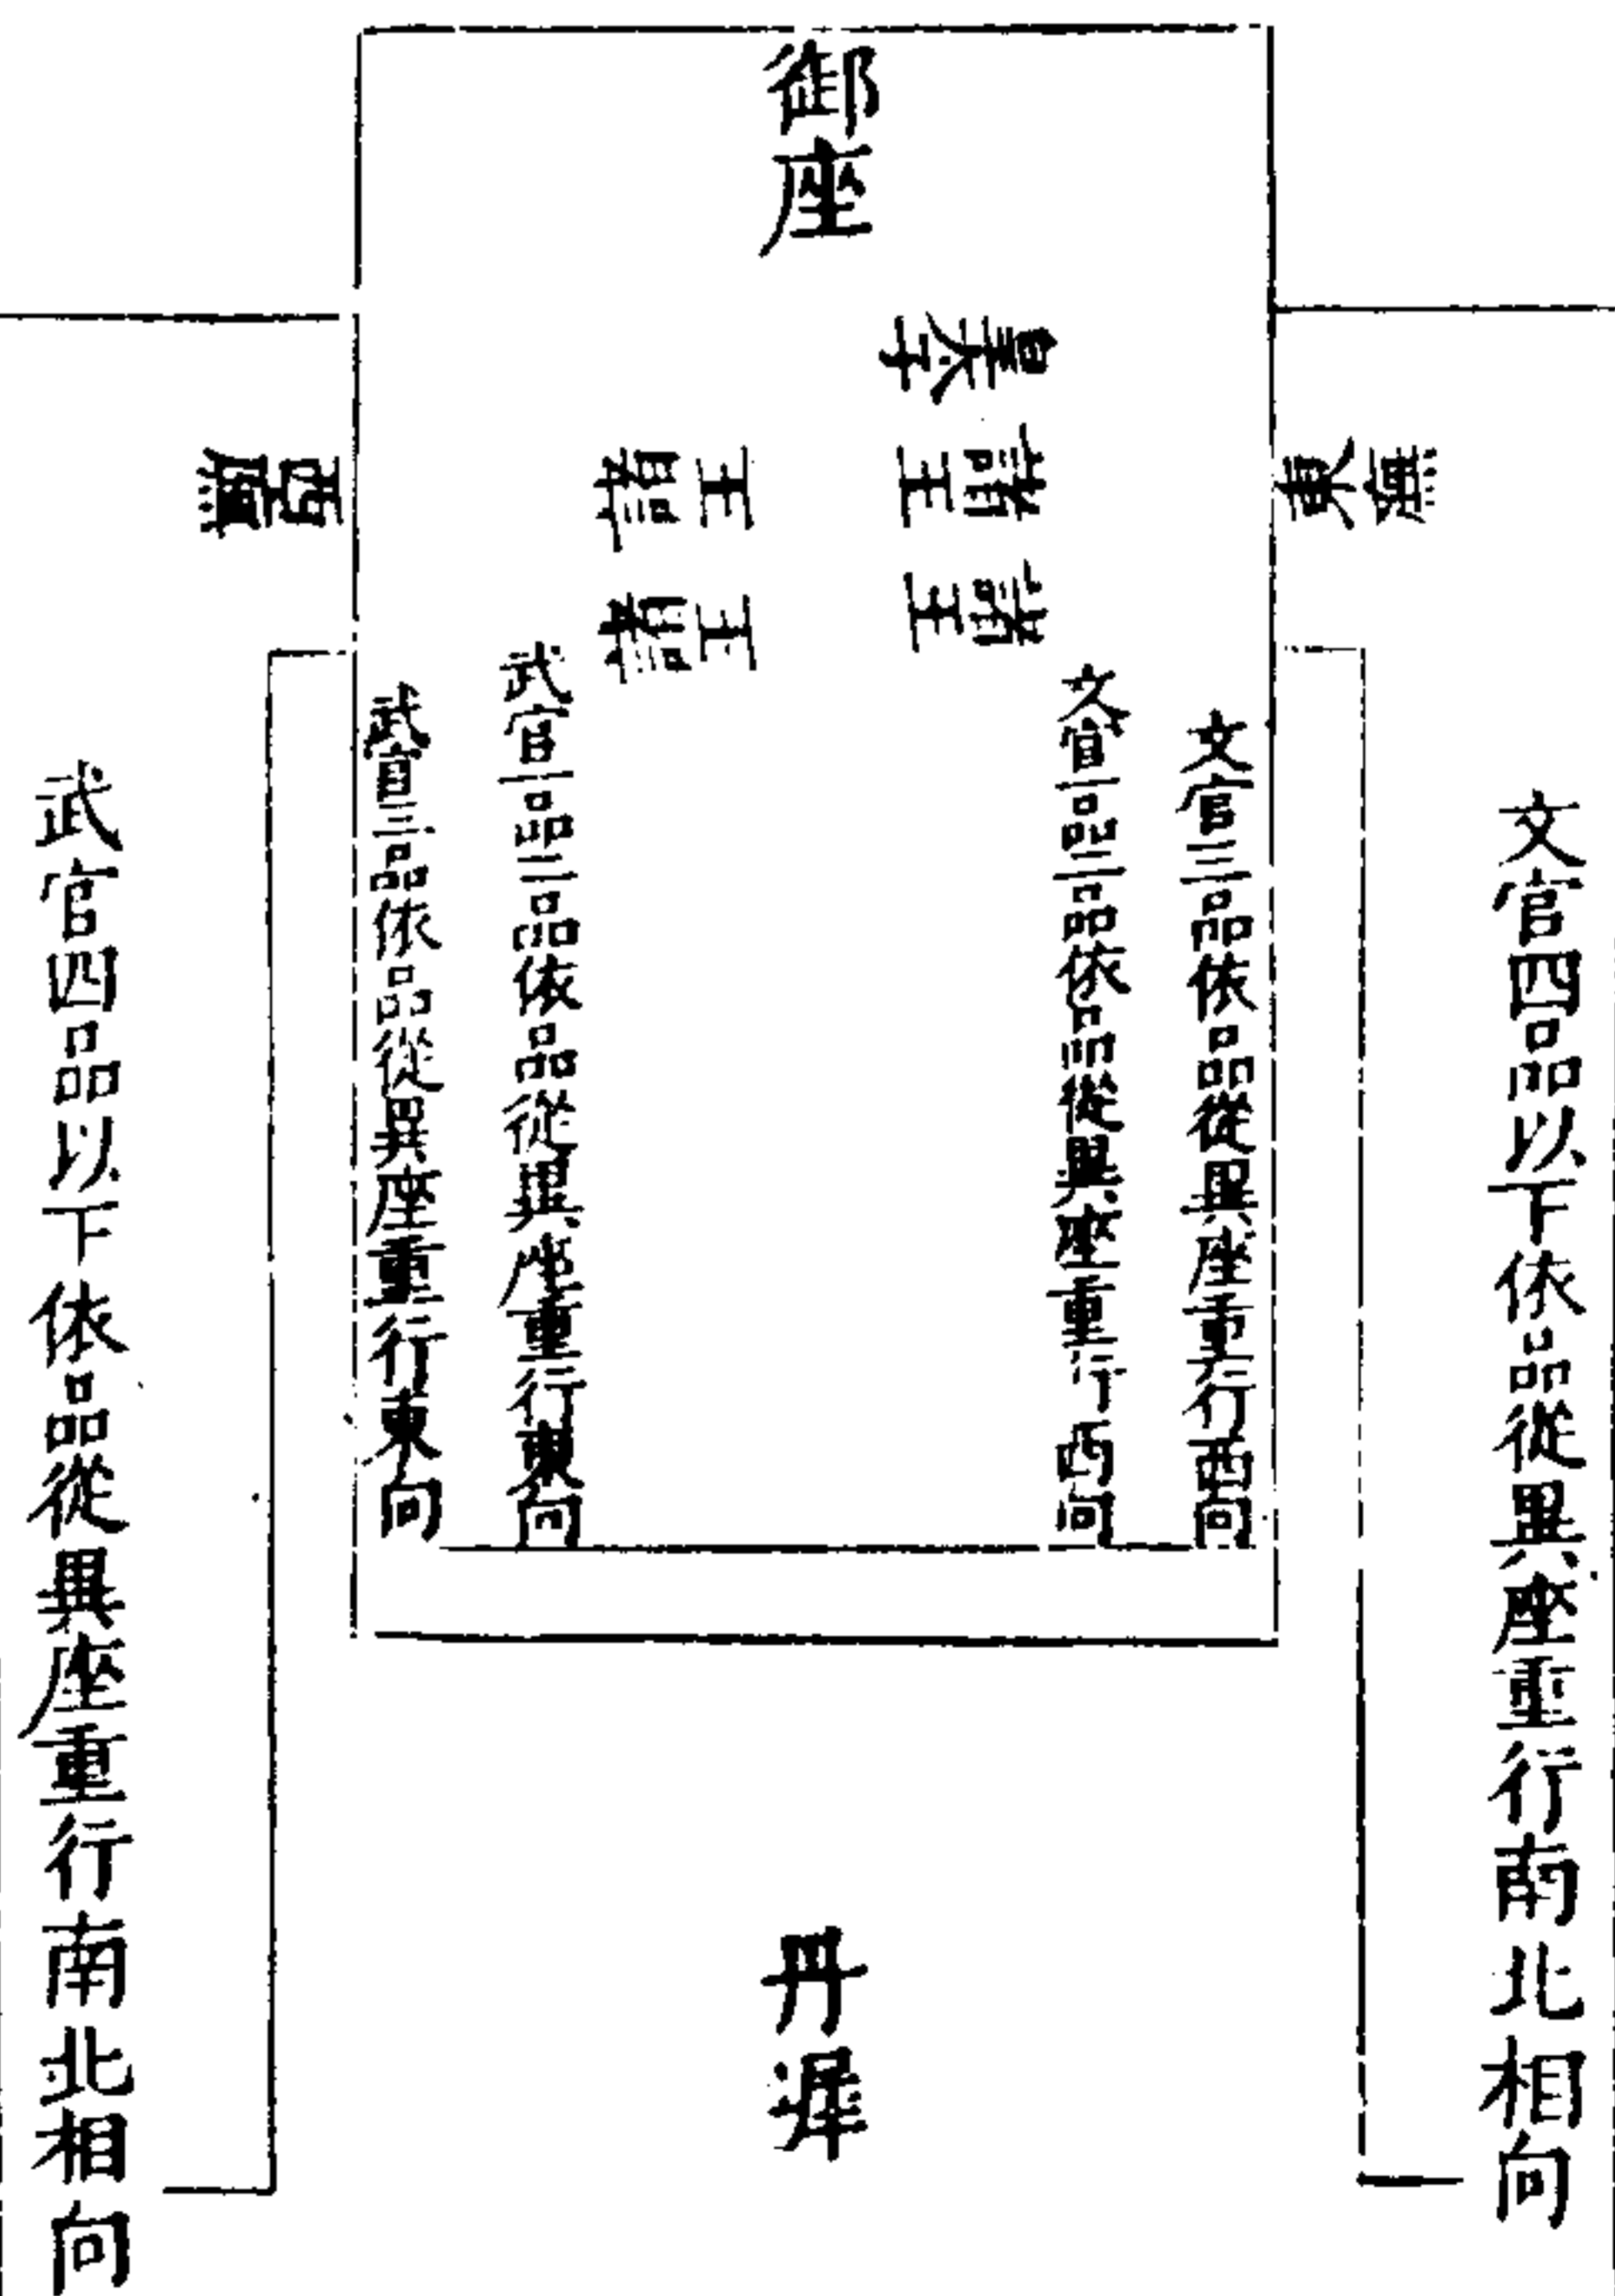 御座
皇太子
諸王
諸王
諸王
諸王
東廡
西廡
文官四品以下依品從異座重行南北相向
文官三品依品從異座重行西向
文官一品二品依品從異座重行西向
武官一品二品依品從異座重行東向
武官三品依品從異座重行東向
武官四品以下依品從異座重行南北相向
丹墀